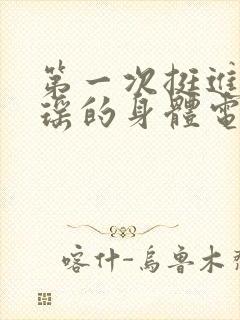 第一次挺進
瑶的身體電
喀什-烏魯木齊